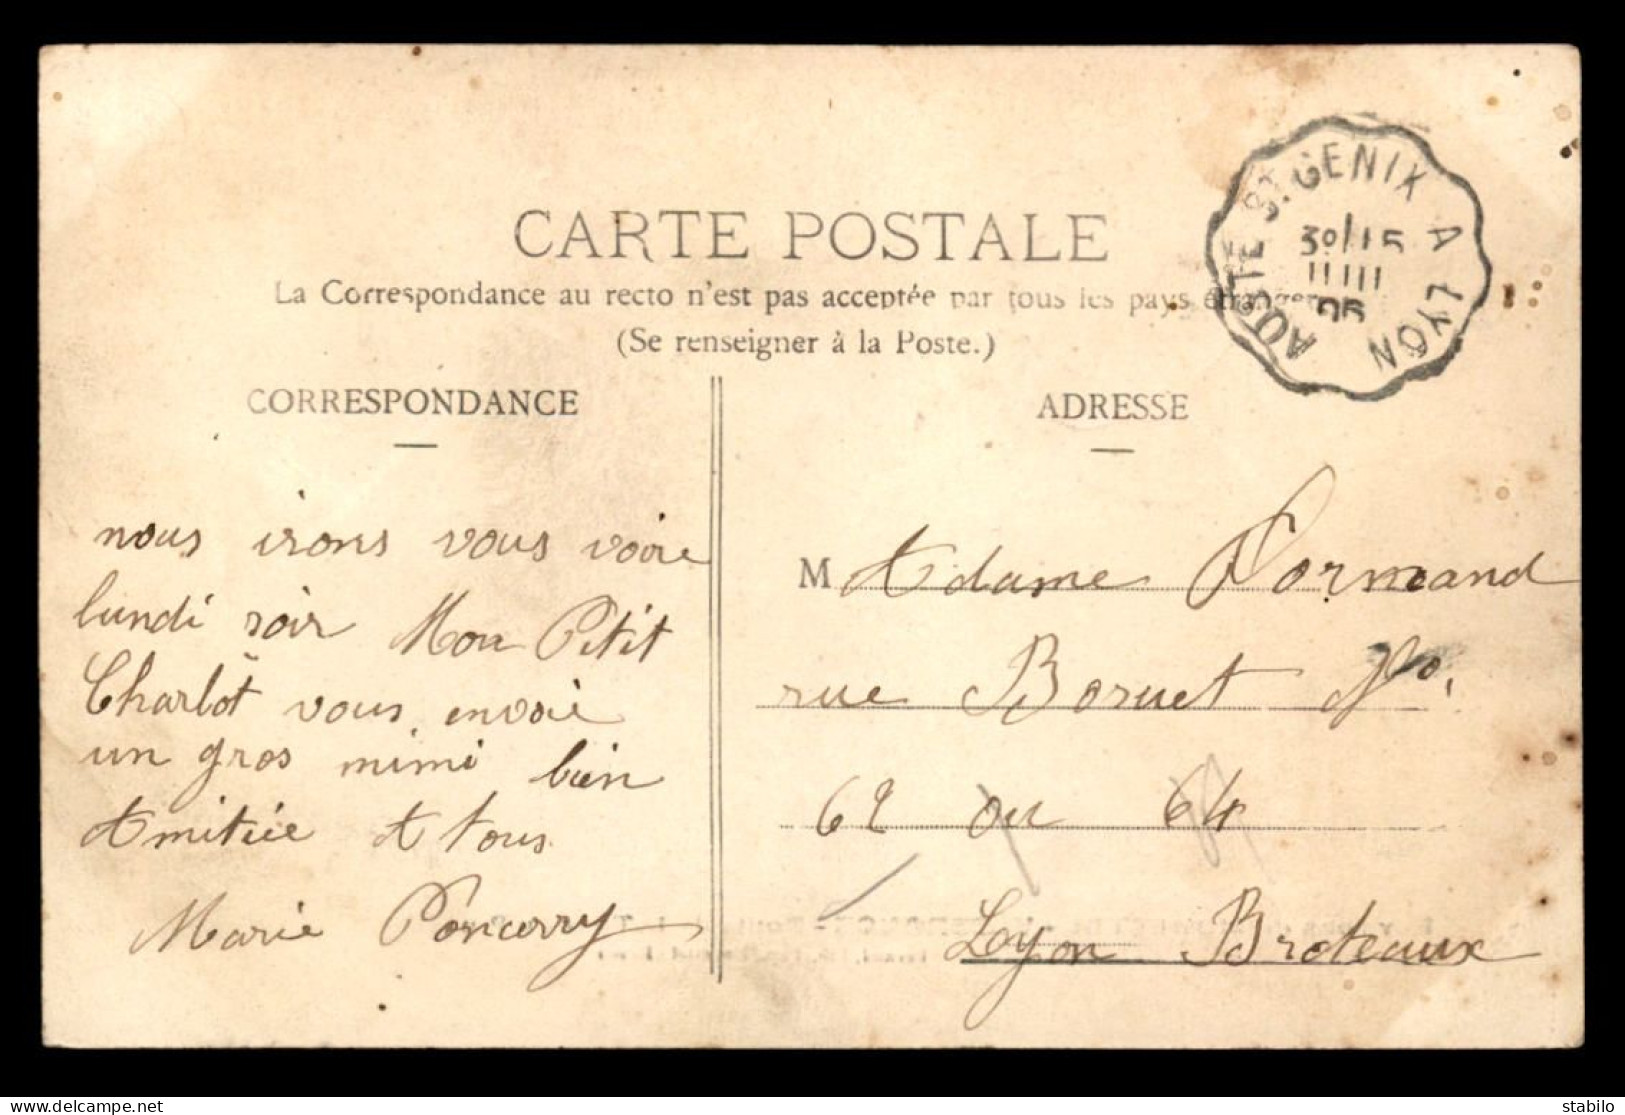 CARTE POSTALE
La Correspondance au recto n'est pas acceptée par tous les pays étrangers
(Se renseigner à la Poste.)
AOSTE ST GENIX A LYON
CORRESPONDANCE
nous irons vous voire
lundi soir Mon Petit
Charlot vous envoie
un gros mimi bien
Amitiée A tous
Marie
ADRESSE
M Adame
rue No.
62 ou 64
Lyon Broteaux
delcampe.net
stabilo